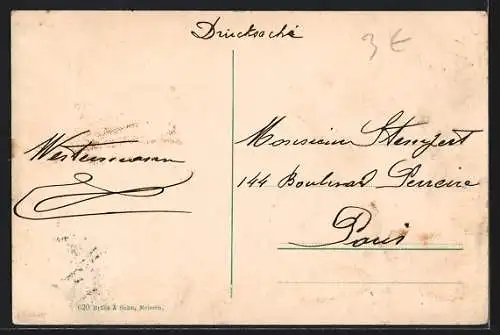 Drucksache
3 €
Westermann
Monsieur Stempfert
144 Boulevard Pereire
Paris
620 Brück & Sohn, Meissen.